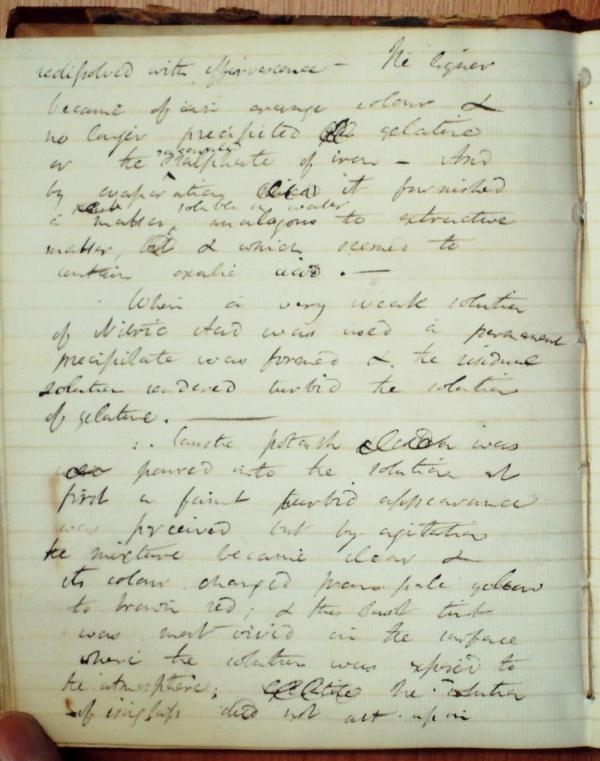 redissolved with effervescence – The liquor
became of an orange colour &
no longer precipitated gelatine
or the Sulphate of iron – And
by evaporation it furnished
a matter soluble in water analogous to extractive
matter, & which seemed to
contain oxalic acid . —
When a very weak solution
of Nitric Acid was used a permanent
precipitate was formed & the residual
solution rendered turbid the solution
of gelatine. ———
: . Caustic potash was
poured into the solution at
first a faint turbid appearance
was perceived but by agitation
the mixture became clear &
its colour changed from pale yellow
to brown red; & this last tint
was most vivid on the surface
where the solution was exposed to
the atmosphere; the solution
of isinglass did not act upon